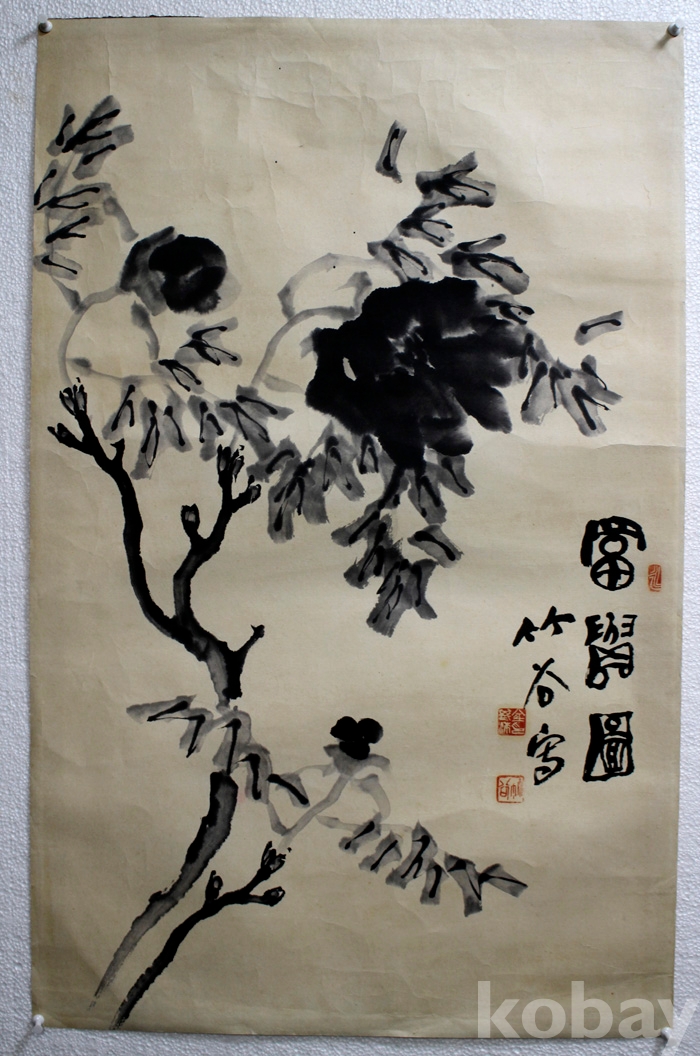 富貴圖
竹谷寫
kobay